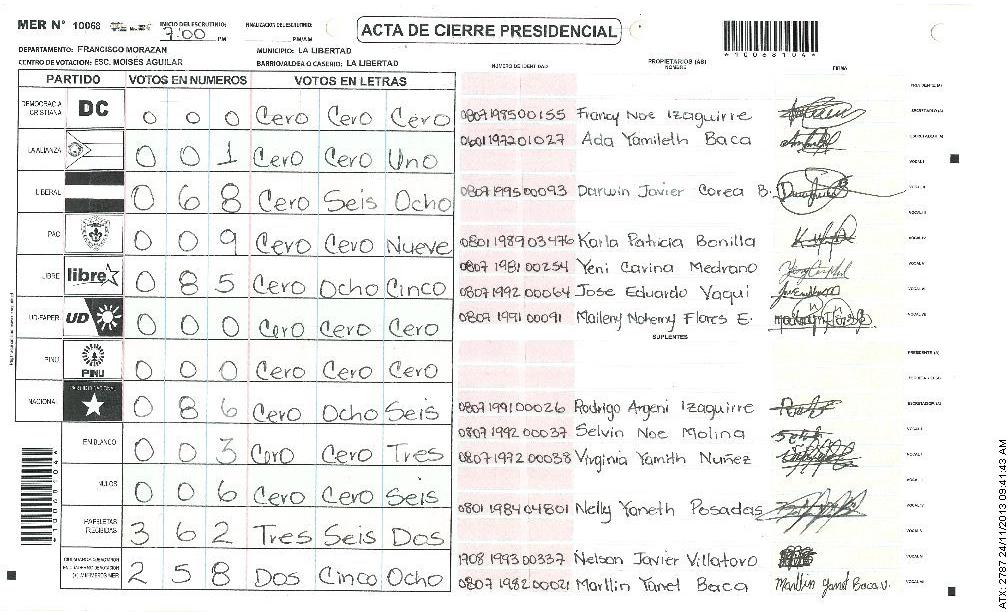 MER N° 10068 INICIO DEL ESCRUTINIO: 7:00 PM FINALIZACION DEL ESCRUTINIO: PM/AM
ACTA DE CIERRE PRESIDENCIAL
*10068104*
DEPARTAMENTO: FRANCISCO MORAZAN MUNICIPIO: LA LIBERTAD
CENTRO DE VOTACION: ESC. MOISES AGUILAR BARRIO/ALDEA O CASERIO: LA LIBERTAD
NUMERO DE IDENTIDAD PROPIETARIOS (AS) NOMBRE FIRMA
PARTIDO VOTOS EN NUMEROS VOTOS EN LETRAS
DEMOCRACIA CRISTIANA DC 0 0 0 Cero Cero Cero
LA ALIANZA 0 0 1 Cero Cero Uno
LIBERAL 0 6 8 Cero Seis Ocho
PAC 0 0 9 Cero Cero Nueve
LIBRE libre 0 8 5 Cero Ocho Cinco
UD-FAPER UD 0 0 0 Cero Cero Cero
PINU PINU 0 0 0 Cero Cero Cero
NACIONAL PARTIDO NACIONAL 0 8 6 Cero Ocho Seis
EN BLANCO 0 0 3 Cero Cero Tres
NULOS 0 0 6 Cero Cero Seis
PAPELETAS RECIBIDAS 3 6 2 Tres Seis Dos
2 5 8 Dos Cinco Ocho
0807198500155 Francy Noe Izaguirre
0601197201027 Ada Yamileth Baca
0807199500093 Darwin Javier Corea B.
0801198903476 Karla Patricia Bonilla
0807198100254 Yeni Carina Medrano
0807199200064 Jose Eduardo Vaqui
0807199100091 Maileny Nohemy Flores E.
SUPLENTES
0807199100026 Rodrigo Argeni Izaguirre
0807199200037 Selvin Noe Molina
0807197200038 Virginia Yamith Nuñez
0801198404801 Nelly Yaneth Posadas
1708199300337 Nelson Javier Villatoro
0807198200021 Marllin Yanet Baca Marllin Yanet Baca V.
ATX 2787 24/11/2013 09:41:43 AM